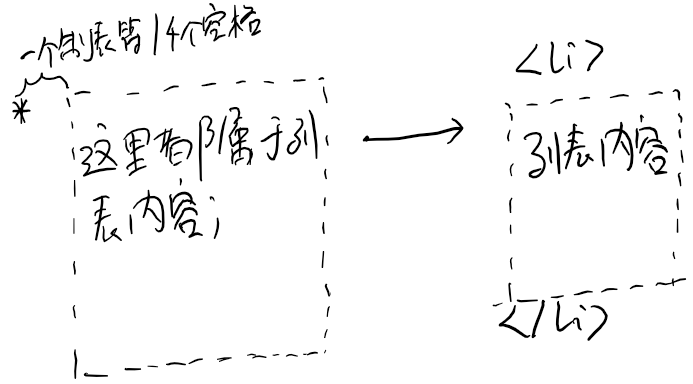 一个制表符/4个空格
*
这里都属于列
表内容;
<li>
列表内容
</li>